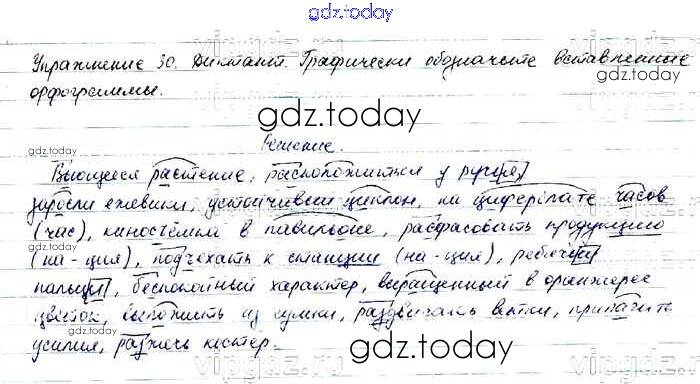 gdz.today
Упражнение 30. Диктант. Графически обозначьте вставленные
орфограммы.
gdz.today
gdz.today
Решение.
Вьющееся растение, расположиться у ручья,
заросли ежевики, устойчивый циклон, на циферблате часов
(час), киносъёмки в павильоне, расфасовать продукцию
(на -ция), подъехать к станции (на -ция), ребячьи
пальцы, беспокойный характер, выращенный в оранжерее
цветок, выложить из сумки, раздвигать ветки, прилагать
усилия, разжечь костёр.
gdz.today